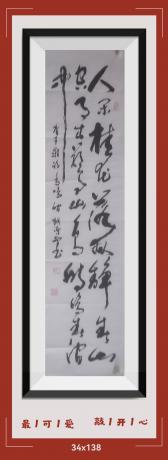 人闲桂花落夜静春山
空月出惊山鸟时鸣春涧
中
最1可1爱 敲1开1心
34x138